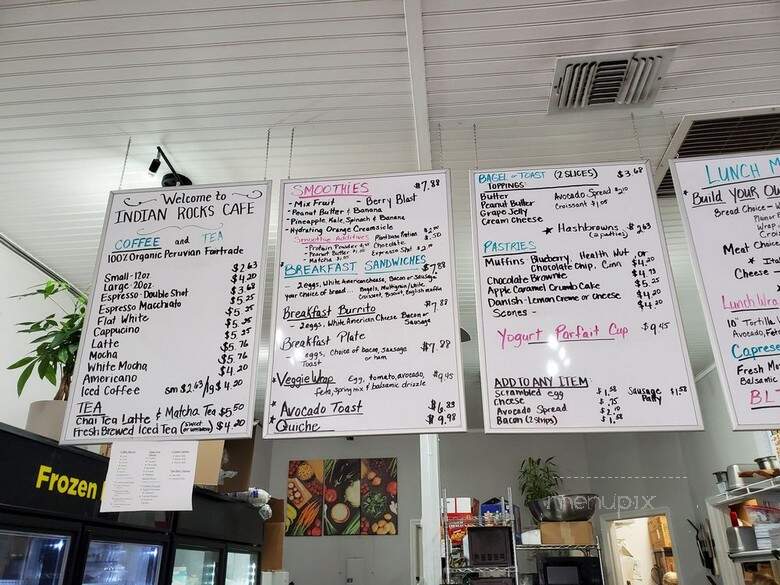 Welcome to
INDIAN ROCKS CAFE
COFFEE and TEA
100% Organic Peruvian Fairtrade
Small-12oz $2.63
Large-20oz $4.20
Espresso-Double Shot $3.68
Espresso Macchiato $5.25
Flat White $5.25
Cappucino $5.25
Latte $5.25
Mocha $5.76
White Mocha $5.76
Americano $4.20
Iced Coffee sm $2.63/lg $4.20
TEA
Chai Tea Latte & Matcha Tea $5.50
Fresh Brewed Iced Tea (sweet or unsweet) $4.20
SMOOTHIES $7.88
- Mix Fruit - Berry Blast
- Peanut Butter & Banana
- Pineapple, Kale, Spinach & Banana
- Hydrating Orange Creamsicle
Smoothie Additives
BREAKFAST SANDWICHES $7.88
- 2 eggs, White American cheese, Bacon or Sausage
your choice of bread... Bagels, Multigrain/White,
Croissant, Biscuit, English muffin
Breakfast Burrito $7.88
- 2 eggs, White American Cheese Bacon or
Sausage
Breakfast Plate $7.88
- eggs, Choice of bacon, sausage
Toast or ham
★ Veggie Wrap Egg, tomato, avocado, $9.45
Feta, spring mix & balsamic drizzle
★ Avocado Toast $6.83
Quiche $9.98
BAGEL or TOAST (2 SLICES) $3.68
TOPPINGS
Butter Avocado Spread $2.10
Peanut Butter Croissant $1.05
Grape Jelly
Cream Cheese
★ Hashbrowns $2.63
(2 patties)
PASTRIES
Muffins Blueberry, Health Nut, or
Chocolate Chip, Cinn $4.20
Chocolate Brownie $4.73
Apple Caramel Crumb Cake $5.25
Danish-Lemon Creme or Cheese $4.20
Scones - $4.20
Yogurt Parfait Cup $9.45
ADD TO ANY ITEM
Scrambled egg $1.58 Sausage Patty $1.58
Cheese $.75
Avocado Spread $2.10
Bacon (2 strips) $1.58
LUNCH M
★ Build YOUR OW
Bread Choice - W
Wrap
Cro
Meat Choic
★ Ita
Cheese
Lunch Wra
10" Tortilla W
Avocado, Fet
Caprese
Fresh Mo
Balsamic
BLT
Frozen
menupix